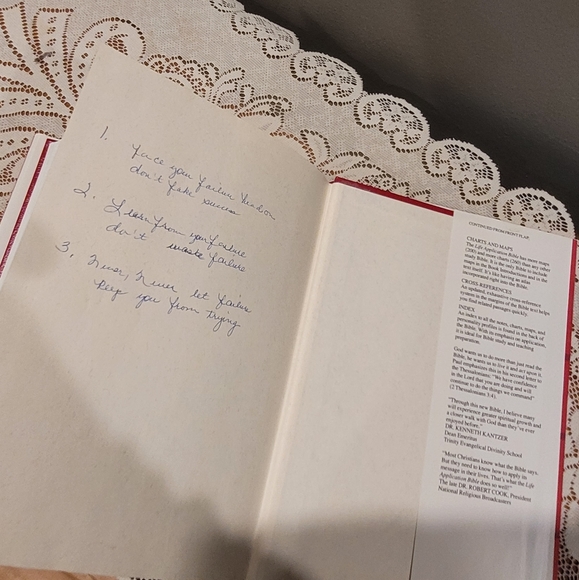 1.
Face your failure
don't fake success
2. Learn from your failure
don't waste failure
3. Never, Never let failure
keep you from trying
CONTINUED FROM FRONT FLAP
CHARTS AND MAPS
The Life Application Bible has more maps
(200) and more charts (260) than any other
study Bible. It is the only Bible to include
maps in the Book Introductions and in the
text itself. It's like having an atlas
incorporated right into the Bible.
CROSS-REFERENCES
An updated, exhaustive cross-reference
system in the margins of the Bible text helps
you find related passages quickly.
INDEX
An index to all the notes, charts, maps, and
personality profiles is found in the back of
the Bible. With its emphasis on application,
it is ideal for Bible study and teaching
preparation.
God wants us to do more than just read the
Bible, he wants us to live it and act upon it.
Paul emphasizes this in his second letter to
the Thessalonians: "We have confidence
in the Lord that you are doing and will
continue to do the things we command"
(2 Thessalonians 3:4).
"Through this new Bible, I believe many
will experience greater spiritual growth and
a closer walk with God than they've ever
enjoyed before."
DR. KENNETH KANTZER
Dean Emeritus
Trinity Evangelical Divinity School
"Most Christians know what the Bible says.
But they need to know how to apply its
message in their lives. That's what the Life
Application Bible does so well!"
The late DR. ROBERT COOK, President
National Religious Broadcasters